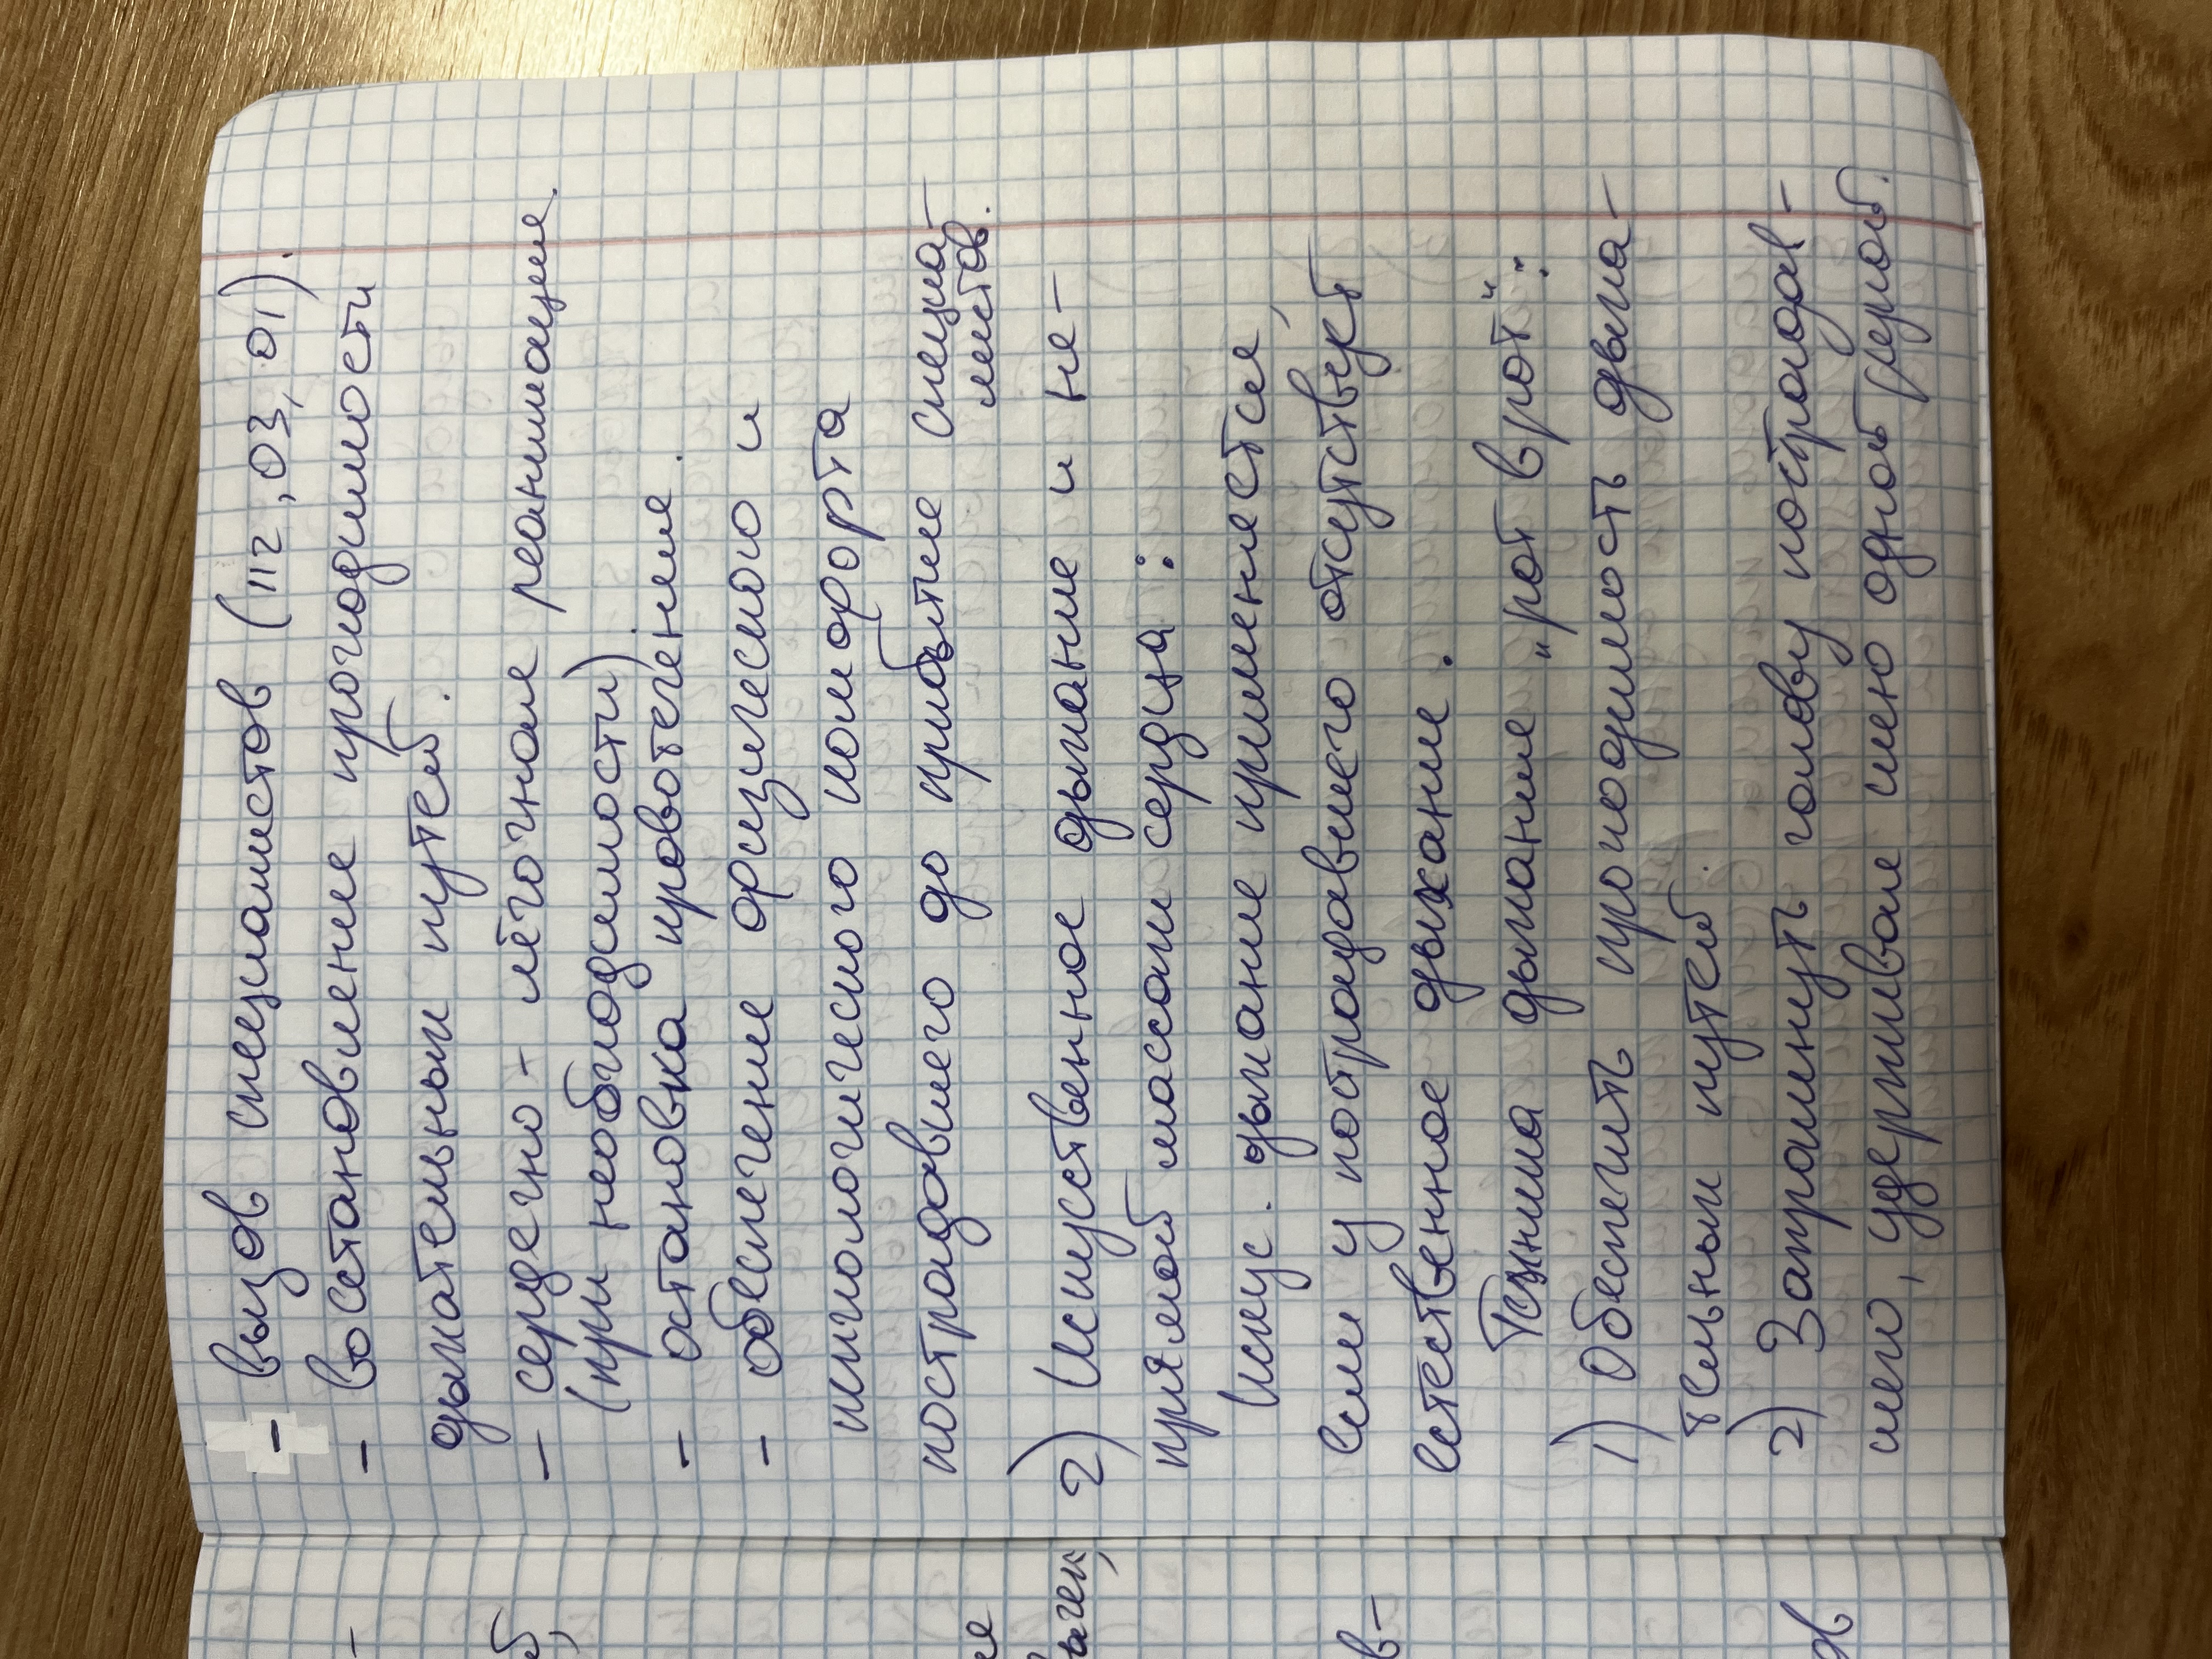 - вызов специалистов (112, 03, 01).
- востановление проходимости
дыхательных путей.
- сердечно - лёгочная реанимация.
(при необходимости)
- остановка кровотечения.
- обеспечение физического и
психологического комфорта
пострадавшего до прибытия специа-
листов.
2) Искуственное дыхание и не-
прямой массаж сердца:
Искус. дыхание применяется,
если у пострадавшего отсутствует
естественное дыхание.
Техника дыхания „рот в рот":
1) Обеспечить проходимость дыха-
тельных путей.
2) Запрокинуть голову пострадав-
шего, удерживая шею одной рукой.